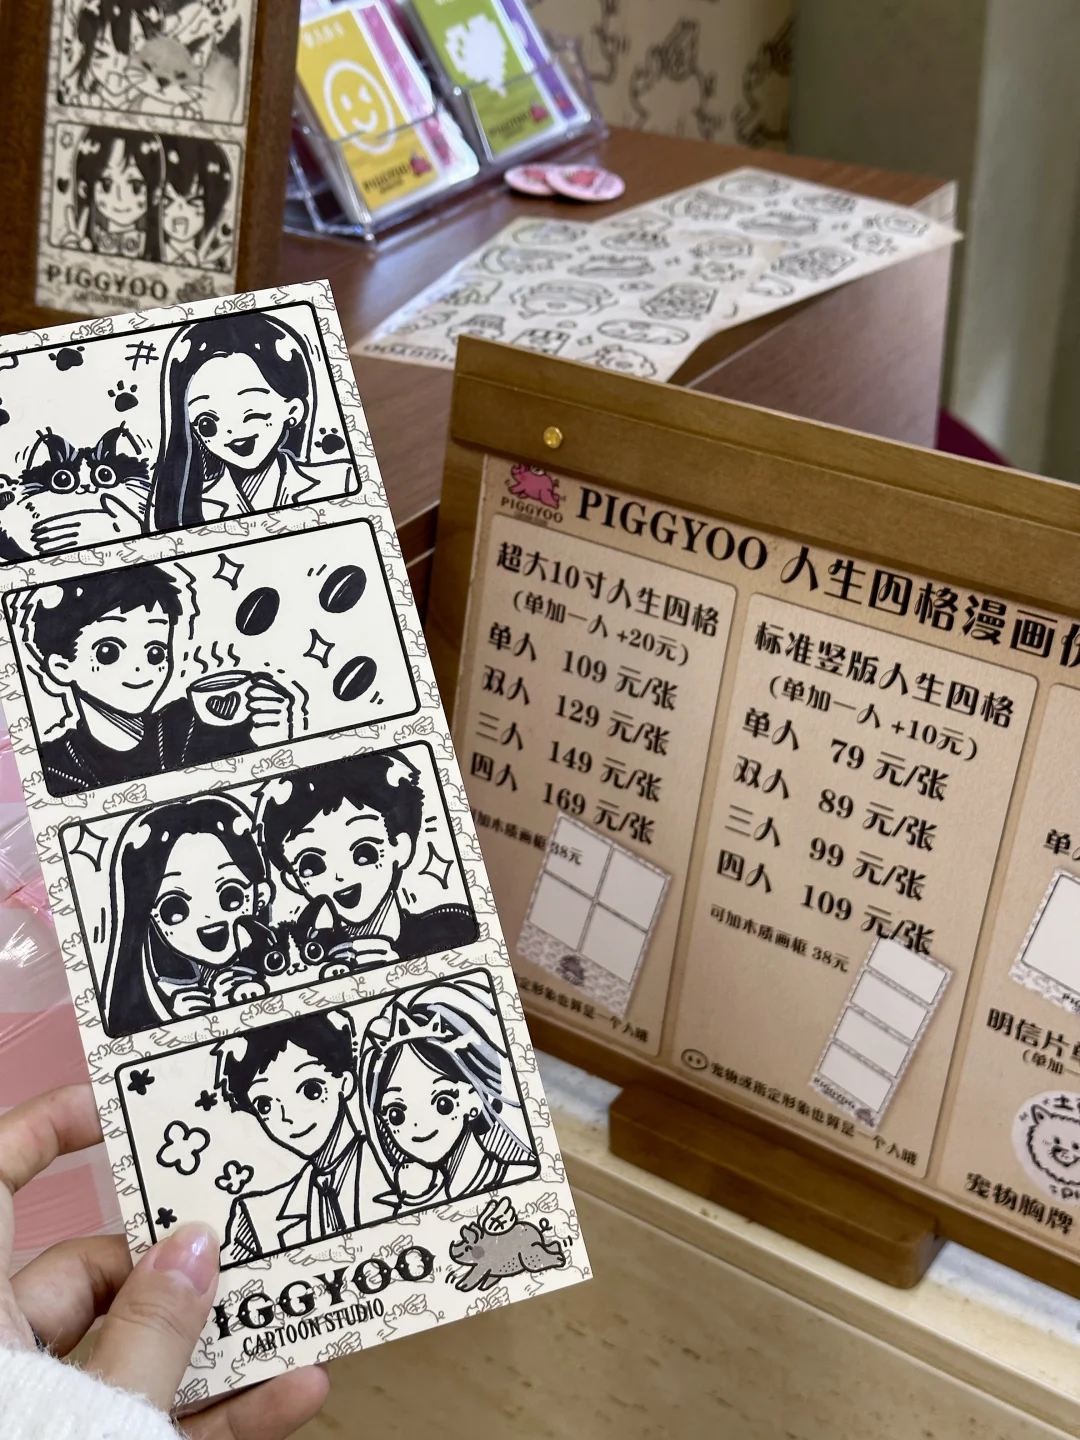 PIGGYOO
PIGGYOO
CARTOON STUDIO
PIGGYOO
PIGGYOO 人生四格漫画
超大10寸人生四格
(单加一人 +20元)
单人 109 元/张
双人 129 元/张
三人 149 元/张
四人 169 元/张
可加木质画框 38元
定形象也算是一个人哦
标准竖版人生四格
(单加一人 +10元)
单人 79 元/张
双人 89 元/张
三人 99 元/张
四人 109 元/张
可加木质画框 38元
宠物或指定形象也算是一个人哦
单
明信片
(单加一
宠物胸牌